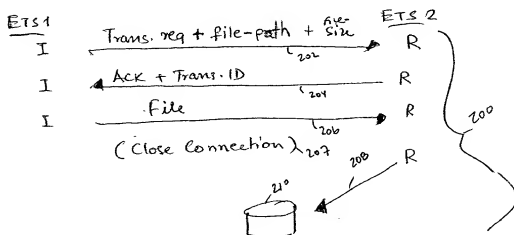 ETS1 ETS 2
Trans. req + file-path + file-size
I R
202
Ack + Trans. ID
I R
204
File
I R
206
(Close Connection) 207
R
208
200
210